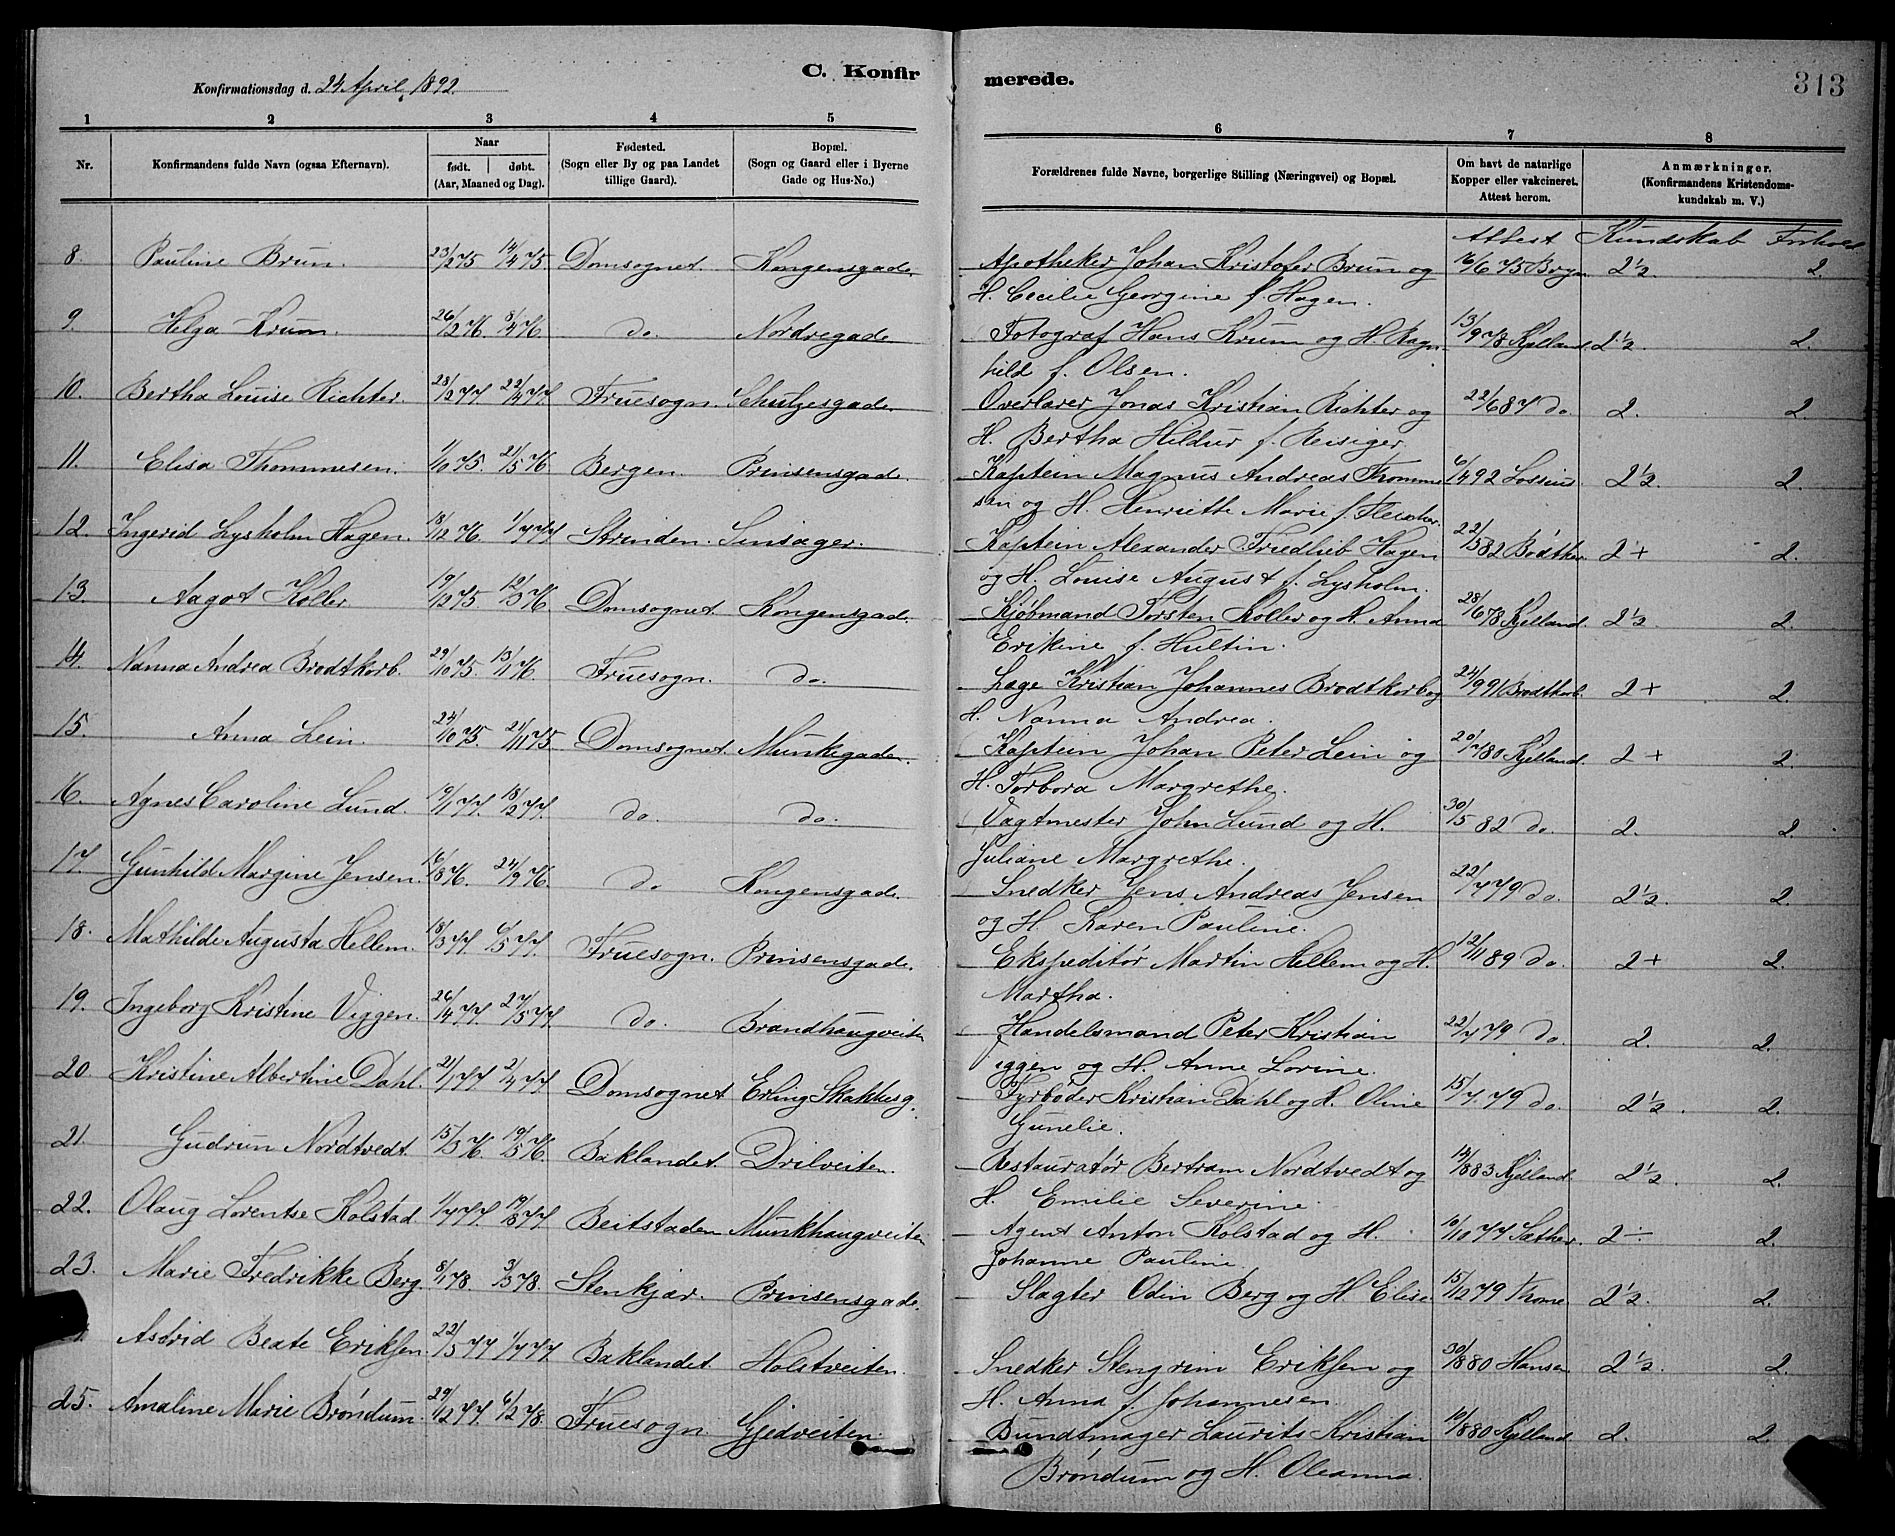 C. Konfirmerede.
313
Konfirmationsdag d. 24 April 1892.
1 2 3 4 5 6 7 8
Nr. Konfirmandens fulde Navn (ogsaa Efternavn). Naar født. døbt. (Aar, Maaned og Dag). Fødested. (Sogn eller By og paa Landet tillige Gaard). Bopæl. (Sogn og Gaard eller i Byerne Gade og Hus-No.) Forældrenes fulde Navne, borgerlige Stilling (Næringsvei) og Bopæl. Om havt de naturlige Kopper eller vakcineret. Attest herom. Anmærkninger. (Konfirmandens Kristendomskundskab m. V.)
Attest Kundskab Forhold
8. Pauline Brun. 23/2 75 14/4 75 Domsognet. Kongensgade Apotheker Johan Kristofer Brun og 16/6 75 2 1/2. 2.
H. Cecilie Georgine f. Hagen.
9. Helga Krum. 26/2 76. 8/4 76. do. Nordregade Fotograf Hans Krum og H. Ragn- 13/9 78 Kjelland. 2 1/2. 2.
hild f. Olsen.
10. Bertha Louise Richter. 28/2 77. 22/4 77. Fruesogn. Schultzesgade. Overlærer Jonas Kristian Richter og 22/6 87 do 2. 2.
H. Bertha Hildur f. Reisiger.
11. Elisa Thommesen. 1/10 75. 21/5 76. Bergen. Prinsensgade. Kaptein Magnus Andreas Thomme 6/4 92 2 1/2. 2.
sen og H. Henriette Marie f. Fleischer.
12. Ingerid Lysholm Hagen. 18/12 76. 1/7 77 Strinden. Sinsager. Kaptein Alexander Friedlieb Hagen 22/5 82 2+ 2.
og H. Louise August f. Lysholm.
13. Aagot Koller 19/12 75. 12/3 76. Domsognet Kongensgade. Kjøbmand Torsten Koller og H. Anna 28/6 78 Kjelland. 2 1/2. 2.
Erikine f. Hultin.
14. Nanna Andrea Brodtkorb. 29/10 75. 13/1 76. Fruesogn. do. Læge Kristian Johannes Brodtkorb og 24/9 91 Brodtkorb. 2+ 2.
H. Nanna Andrea.
15. Anna Lein. 24/10 75. 21/11 75. Domsognet Munkegaden. Kaptein Johan Peter Lein og 20/7 80 Kjelland. 2+ 2.
H. Torbora Margrethe.
16. Agnes Caroline Lund. 19/1 77. 18/2 77. do. do. Vagtmester John Lund og H. 30/5 82 do. 2. 2.
Juliane Margrethe.
17. Gunhild Margine Jensen. 16/8 76. 24/9 76. do Kongensgade. Snedker Jens Andreas Jensen 22/7 79 do. 2 1/2. 2.
og H. Karen Pauline.
18. Mathilde Augusta Hellem. 18/3 77. 6/5 77. Fruesogn. Prinsensgade. Ekspeditør Martin Hellem og H. 12/11 89 do. 2+ 2.
Martha.
19. Ingeborg Kristine Viggen. 26/4 77. 27/5 77. do. Brandhaugveiten Handelsmand Peter Kristian 22/7 79 do 2. 2.
Viggen og H. Anne Lorine.
20. Kristine Albertine Dahl. 21/1 77 2/4 77 Domsognet Erling Skakkesg. Fyrbøder Kristian Dahl og H. Oline 15/7. 79 do. 2 1/2. 2.
Gunelie.
21. Gudrun Nordtvedt. 15/3 76. 19/5 76. Baklandet. Drilveiten. Restauratør Bertram Nordtvedt og 14/8 83 Kjelland. 2 1/2. 2.
H. Emilie Severine.
22. Olaug Lorentse Kolstad 1/7 77. 19/8 77 Beitstaden Munkhaugveiten Agent Anton Kolstad og H. 10/10 77 Sæther. 2÷ 2.
Johanne Pauline.
23. Marie Fredrikke Berg. 8/1 78. 3/3 78. Stenkjær. Prinsensgade. Slagter Odin Berg og H Elise 15/12 79 2 1/2. 2.
Astrid Beate Eriksen 22/5 77 1/7 77. Baklandet Holstveiten. Snedker Stengrim Eriksen og 30/8 80 Hansen 2 1/2. 2.
H. Anna f. Johannesen.
25. Amaline Marie Brøndum. 29/12 77. 6/2 78. Fruesogn. Gjedveiten. Bundtmager Laurits Kristian 10/8 80 Kjelland. 2. 2.
Brøndum og H. Oleanna.